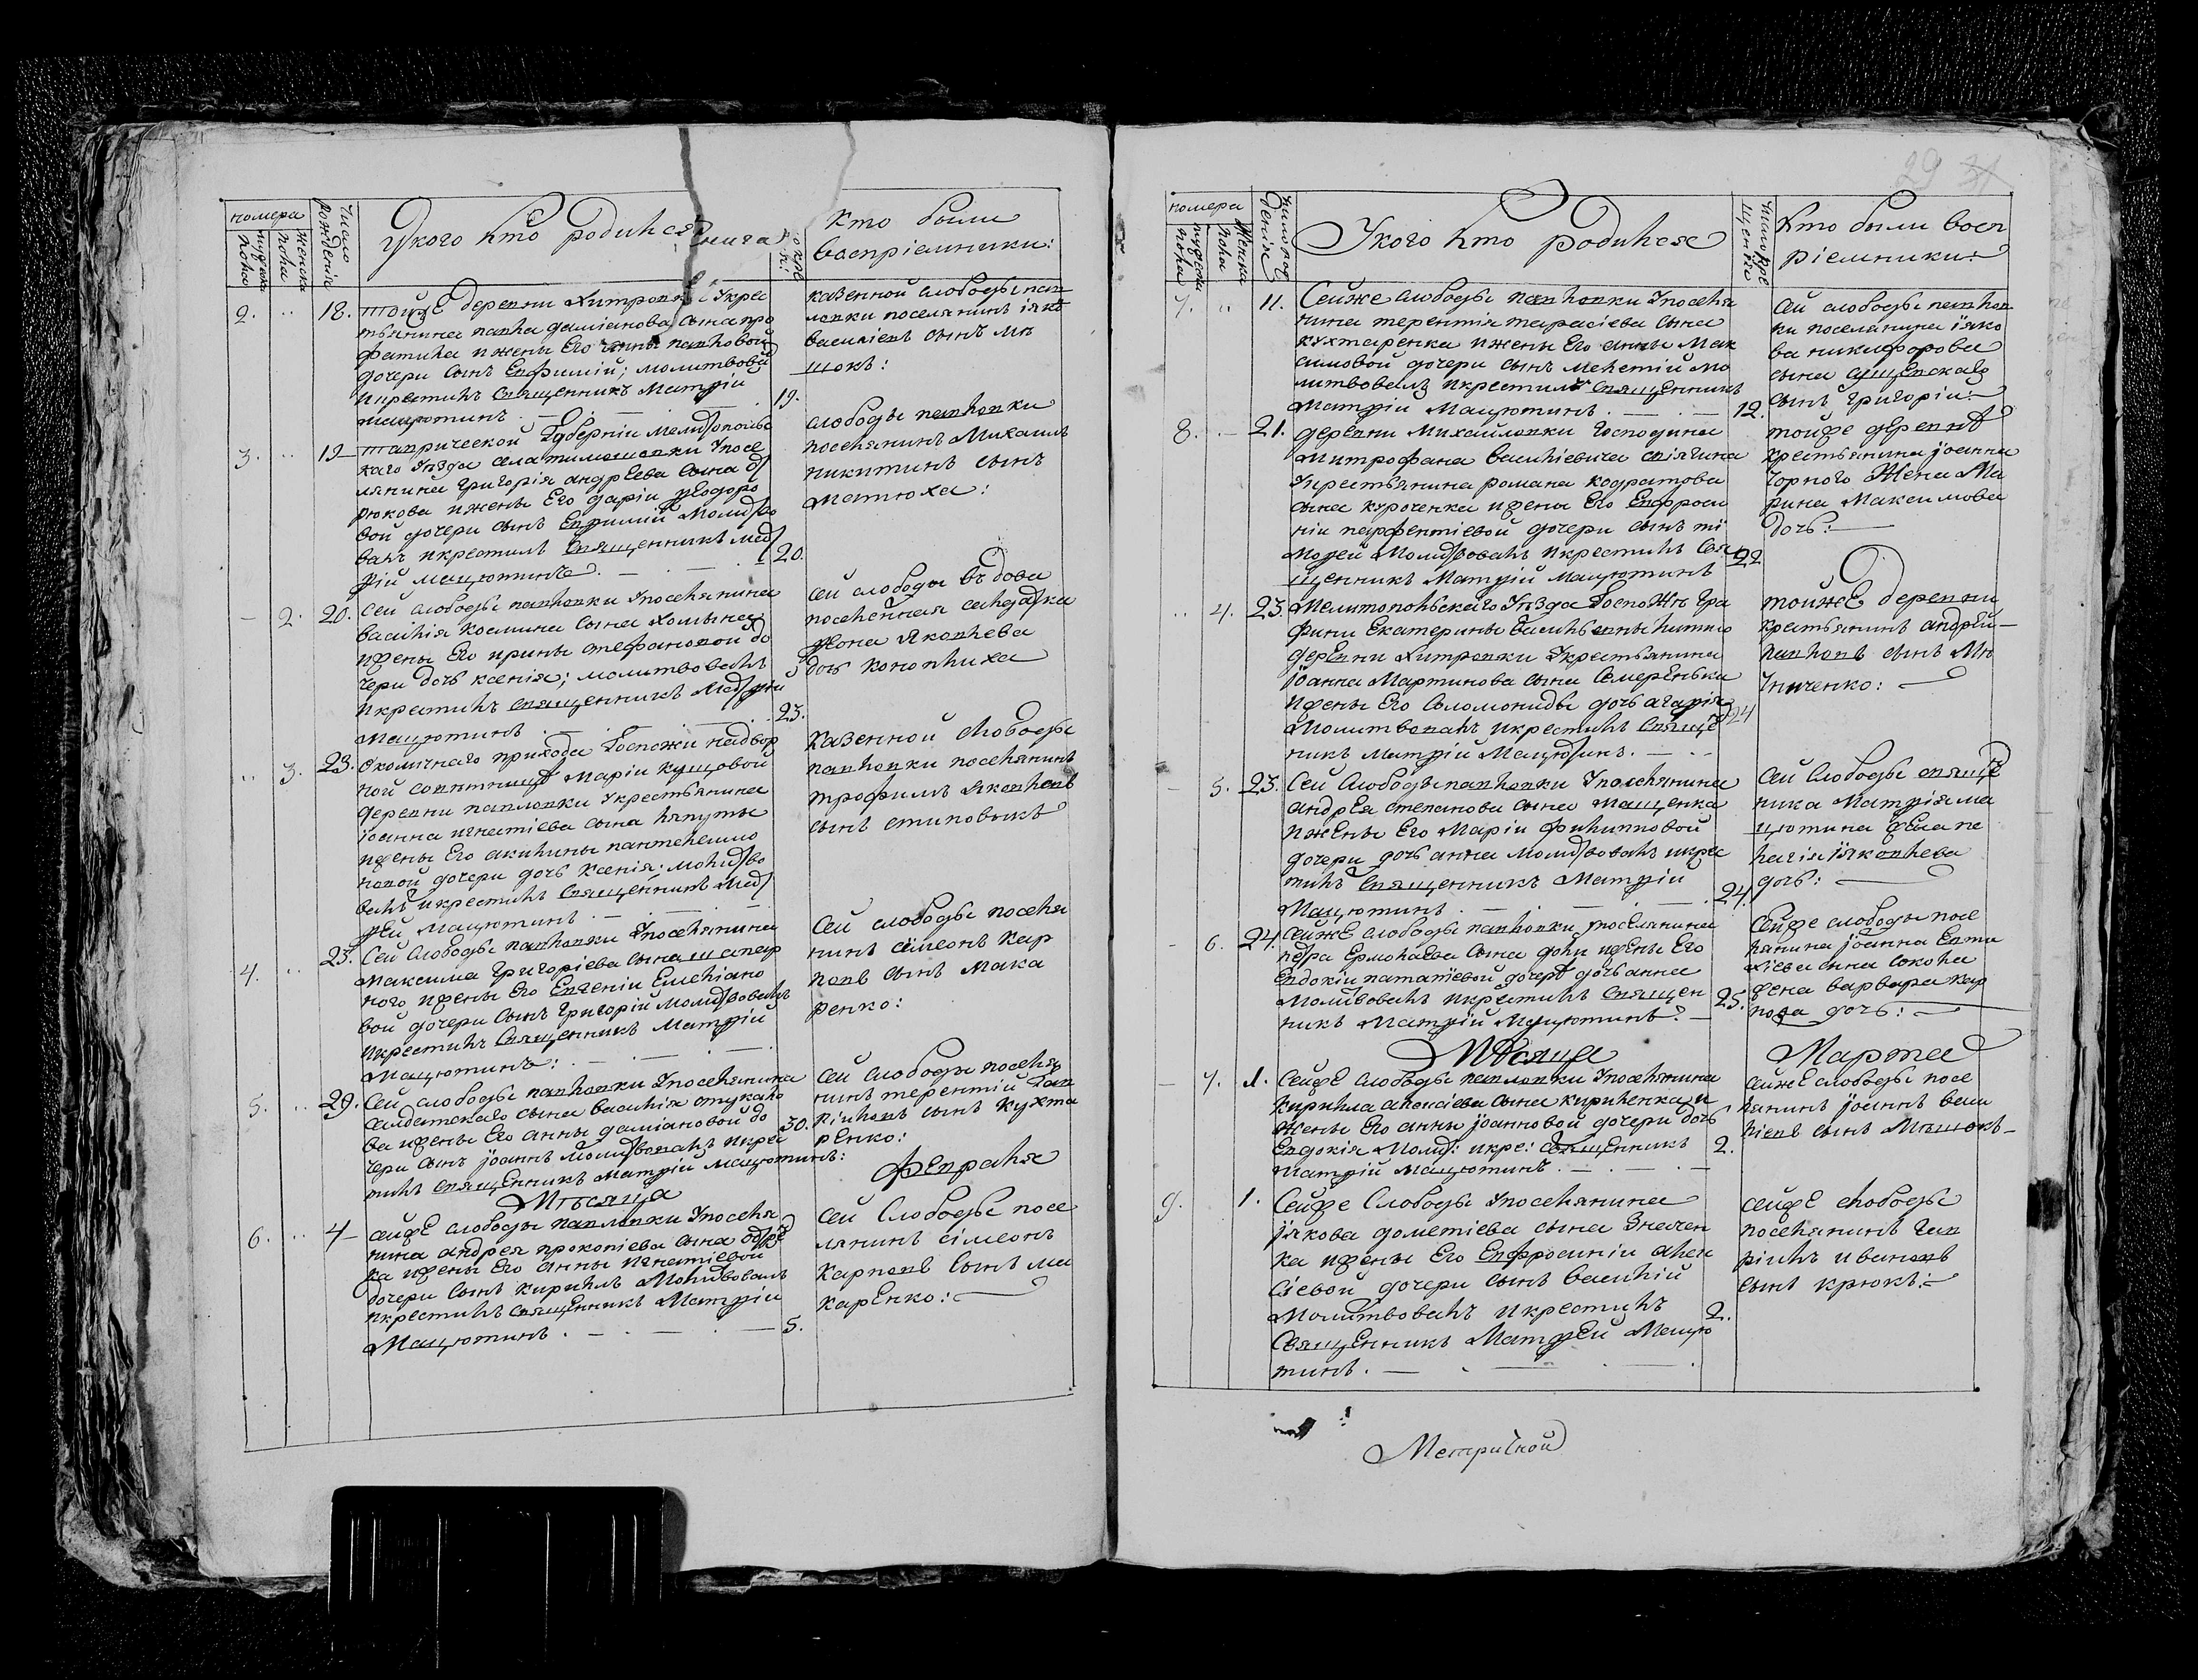 номера
мужеска пола
женска пола
Число рожденія
У кого кто родился
окре
Кто были
восприемники:
2. 18. тойже деревни Хитровки Укрес
тьянина павла даміанова сына про
и жены Его Анны павловой
дочери сынъ Евфимій; молитвовалъ
икрестилъ Священникъ Матфій
мацютинъ. 19.
казенной слободы пав
ловки поселянинъ іяко
василіевъ сынъ мѣ
шокъ:
3. 19 таврической Губерніи мелитополь
каго уѣзда села тимошовки Упосе
лянина Григорія андрѣева сына
рюкова ижены Его даріи феодоро
вой дочери сынъ Евфимій Молитво
валъ икрестилъ Священникъ мат
фій мацютинъ. 20.
слободы павловки
поселянинъ Михаилъ
никитинъ сынъ
матюха:
2. 20. Сей слободы павловки Упоселянина
василія космина сына Хомына
ижены Его ирины стефановой до
чери дочь ксенія; молитвовалъ
икрестилъ священникъ Матфій
мацютинъ 23.
сей слободы вдова
поселенная салдатка
яковлева
дочь коноплиха
3. 23. Околичнаго прихода Госпожи надвор
ной совѣтницы Маріи кущовой
деревни павловки укрестьянина
іоанна игнатіева сына ляпуты
ижены Его акилины пантелеимо
новой дочери дочь ксенія; молитво
валъ икрестилъ Священникъ мат
фей мацютинъ
казенной слободы
павловки поселянинъ
трофимъ яковлевъ
сынъ
4. 23. Сей слободы павловки Упоселянина
Максима Григоріева сына
ного ижены Его Евгеніи Емеліано
вой дочери сынъ Григорій молитвовалъ
икрестилъ Священникъ Матфій
Мацютинъ:
Сей слободы поселя
нинъ сімеонъ кар
повъ сынъ мака
ренко:
5. 29. Сей слободы павловки Упоселянина
салдатскаго сына василія стукало
ва ижены Его анны даміановой до
чери сынъ іоаннъ молитвовалъ икрес
тилъ Священникъ Матфій мацютинъ: 30.
Сей слободы поселя
нинъ терентій Гав
ріиловъ сынъ кухта
ренко:
Мѣсяца
Февраля
6. 4 сейже слободы павловки Упоселя
нина андрея прокопіева сына
ка ижены Его анны игнатіевой
дочери сынъ кирилъ Молитвовалъ
икрестилъ Священникъ Матфій
Мацютинъ. 5.
Сей Слободы посе
лянинъ сімеонъ
карповъ сынъ ма
карЕнко:
29 31
номера
мужска пола
Женска пола
число рожденія
У кого кто родился
число крещенія
Кто были восп
ріемники:
7. 11. Сейже слободы павловки Упоселя
нина терентія тарасіева сына
кухтаренка ижены Его анны Мак
симовой дочери сынъ мелетій мо
литвовалъ икрестилъ Священникъ
Матфій мацютинъ. 12.
Сей слободы павлов
ки поселянина іяко
ва никифорова
сына
сынъ григорій
8. 21. деревни Михайловки Господина
Митрофана Василіевича
Укрестьянина романа кодратова
сына куроченка ижены Его Евфроси
ніи парфентіевой дочери сынъ ти
мофей Молитвовалъ икрестилъ Свя
щенникъ Матфій мацютинъ 22
тойже деревнѣ
крестьянина іоанна
чорного Жена Ма
рина Максимова
дочь:
4. 23. Мелитопольскаго Уѣзда Госпожѣ Гра
фини Екатерины Василіевны литто
деревни Хитровки Укрестьянина
іоанна Мартинова сына Семеренька
ижены Его Соломониды дочь агафія
Молитвовалъ икрестилъ Свяще
никъ матфій мацютинъ. 24
тойжЕ деревни
крестьянинъ андрей
павловъ сынъ Мѣ
ниченко:
5. 23. Сей Слободы павловки Упоселянина
андрея степанова сына тащенка
ижены Его Маріи Филипповой
дочери дочь анна молитвовалъ икрес
тилъ Священникъ Матфій
Мацютинъ 24.
Сей Слободы свяще
ника Матфія ма
цютина жена пе
лагія іяковлева
дочь:
6. 24. СейжЕ слободы павловки упоселянина
педра Ермолаева сына ижены Его
Евдокіи игнатіевой дочерѣ дочь анна
Молитвовалъ икрестилъ Священ
никъ Матфій Мацютинъ. 25.
Сейже слободы посе
лянина іоанна Евти
хіева сына сокола
жена варвара кар
пова дочь:
Мѣсяца
Марта
7. 1. Сейже слободы павловки Упоселянина
Кирила алексіева сына кириленка и
жены Его анны іоанновой дочери дочь
Евдокія Молит: икре: Священникъ
матфій мацютинъ. 2.
сейжЕ слободы посе
лянинъ іоаннъ васи
ліевъ сынъ Мѣшокъ
9. 1. Сейже Слободы Упоселянина
іякова дометіева сына Значен
ка ижены Его Евфросиніи алек
сіевой дочери сынъ василій
Молитвовалъ икрестилъ 2.
Священникъ Матфей Мацю
тинъ.
сейже слободы
поселянинъ гав
рілъ ивановъ
сынъ крюкъ:
Метричной